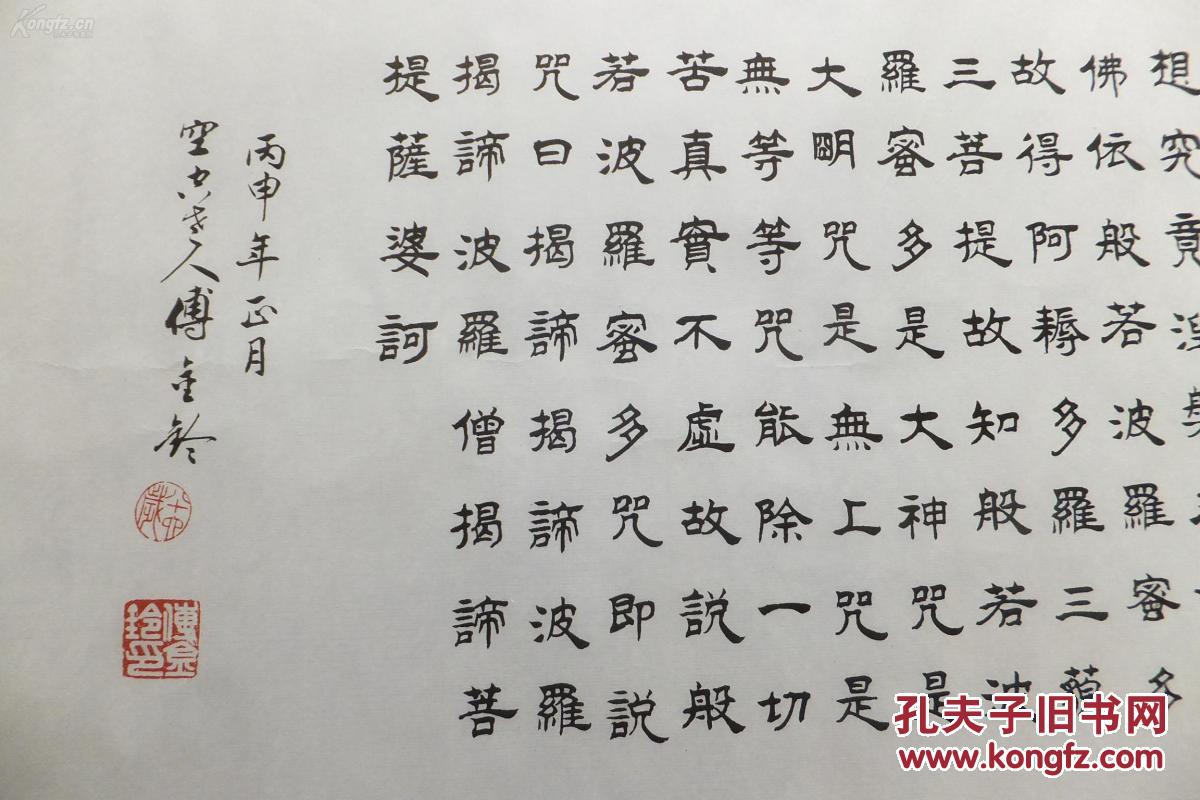 想究竟涅
佛依般若波羅蜜多
故得阿耨多羅三藐
三菩提故知般若波
羅蜜多是大神咒是
大明咒是無上咒是
無等等咒能除一切
苦真實不虛故說般
若波羅蜜多咒即說
咒曰揭諦揭諦波羅
揭諦波羅僧揭諦菩
提薩婆訶
丙申年正月
人傅金鈴
傅金鈴印
Kongfz.cn
孔夫子旧书网
www.kongfz.com